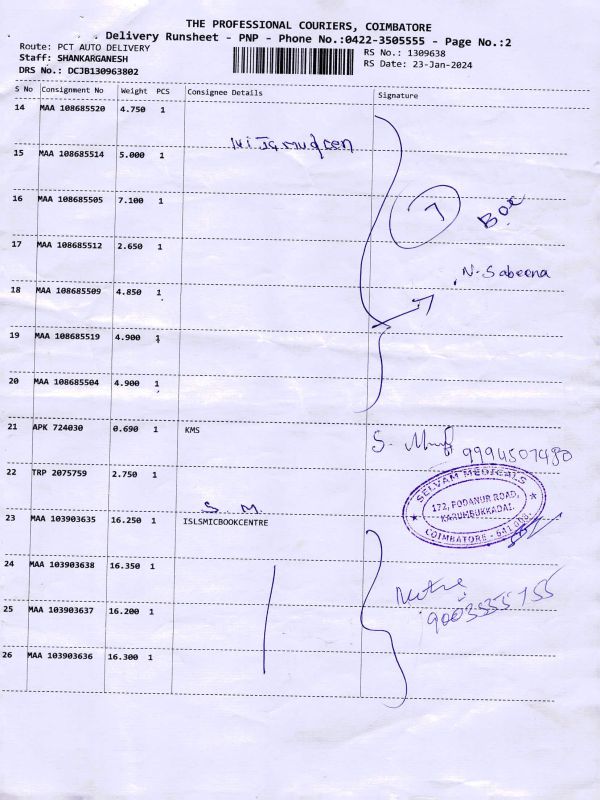 THE PROFESSIONAL COURIERS, COIMBATORE
Delivery Runsheet - PNP - Phone No.:0422-3505555 - Page No.:2
Route: PCT AUTO DELIVERY
RS No.: 1309638
Staff: SHANKARGANESH
RS Date: 23-Jan-2024
DRS No.: DCJB130963802
S No Consignment No Weight PCS Consignee Details Signature
14 MAA 108685520 4.750 1
15 MAA 108685514 5.000 1
16 MAA 108685505 7.100 1
7 Box
17 MAA 108685512 2.650 1
N. Sabeena
18 MAA 108685509 4.850 1
19 MAA 108685519 4.900 1
20 MAA 108685504 4.900 1
21 APK 724030 0.690 1 KMS
9994507480
22 TRP 2075759 2.750 1
SELVAM MEDICALS
172, PODANUR ROAD,
KARUMBUKKADAI,
COIMBATORE - 641 008.
S. M.
23 MAA 103903635 16.250 1 ISLSMICBOOKCENTRE
24 MAA 103903638 16.350 1
25 MAA 103903637 16.200 1
26 MAA 103903636 16.300 1